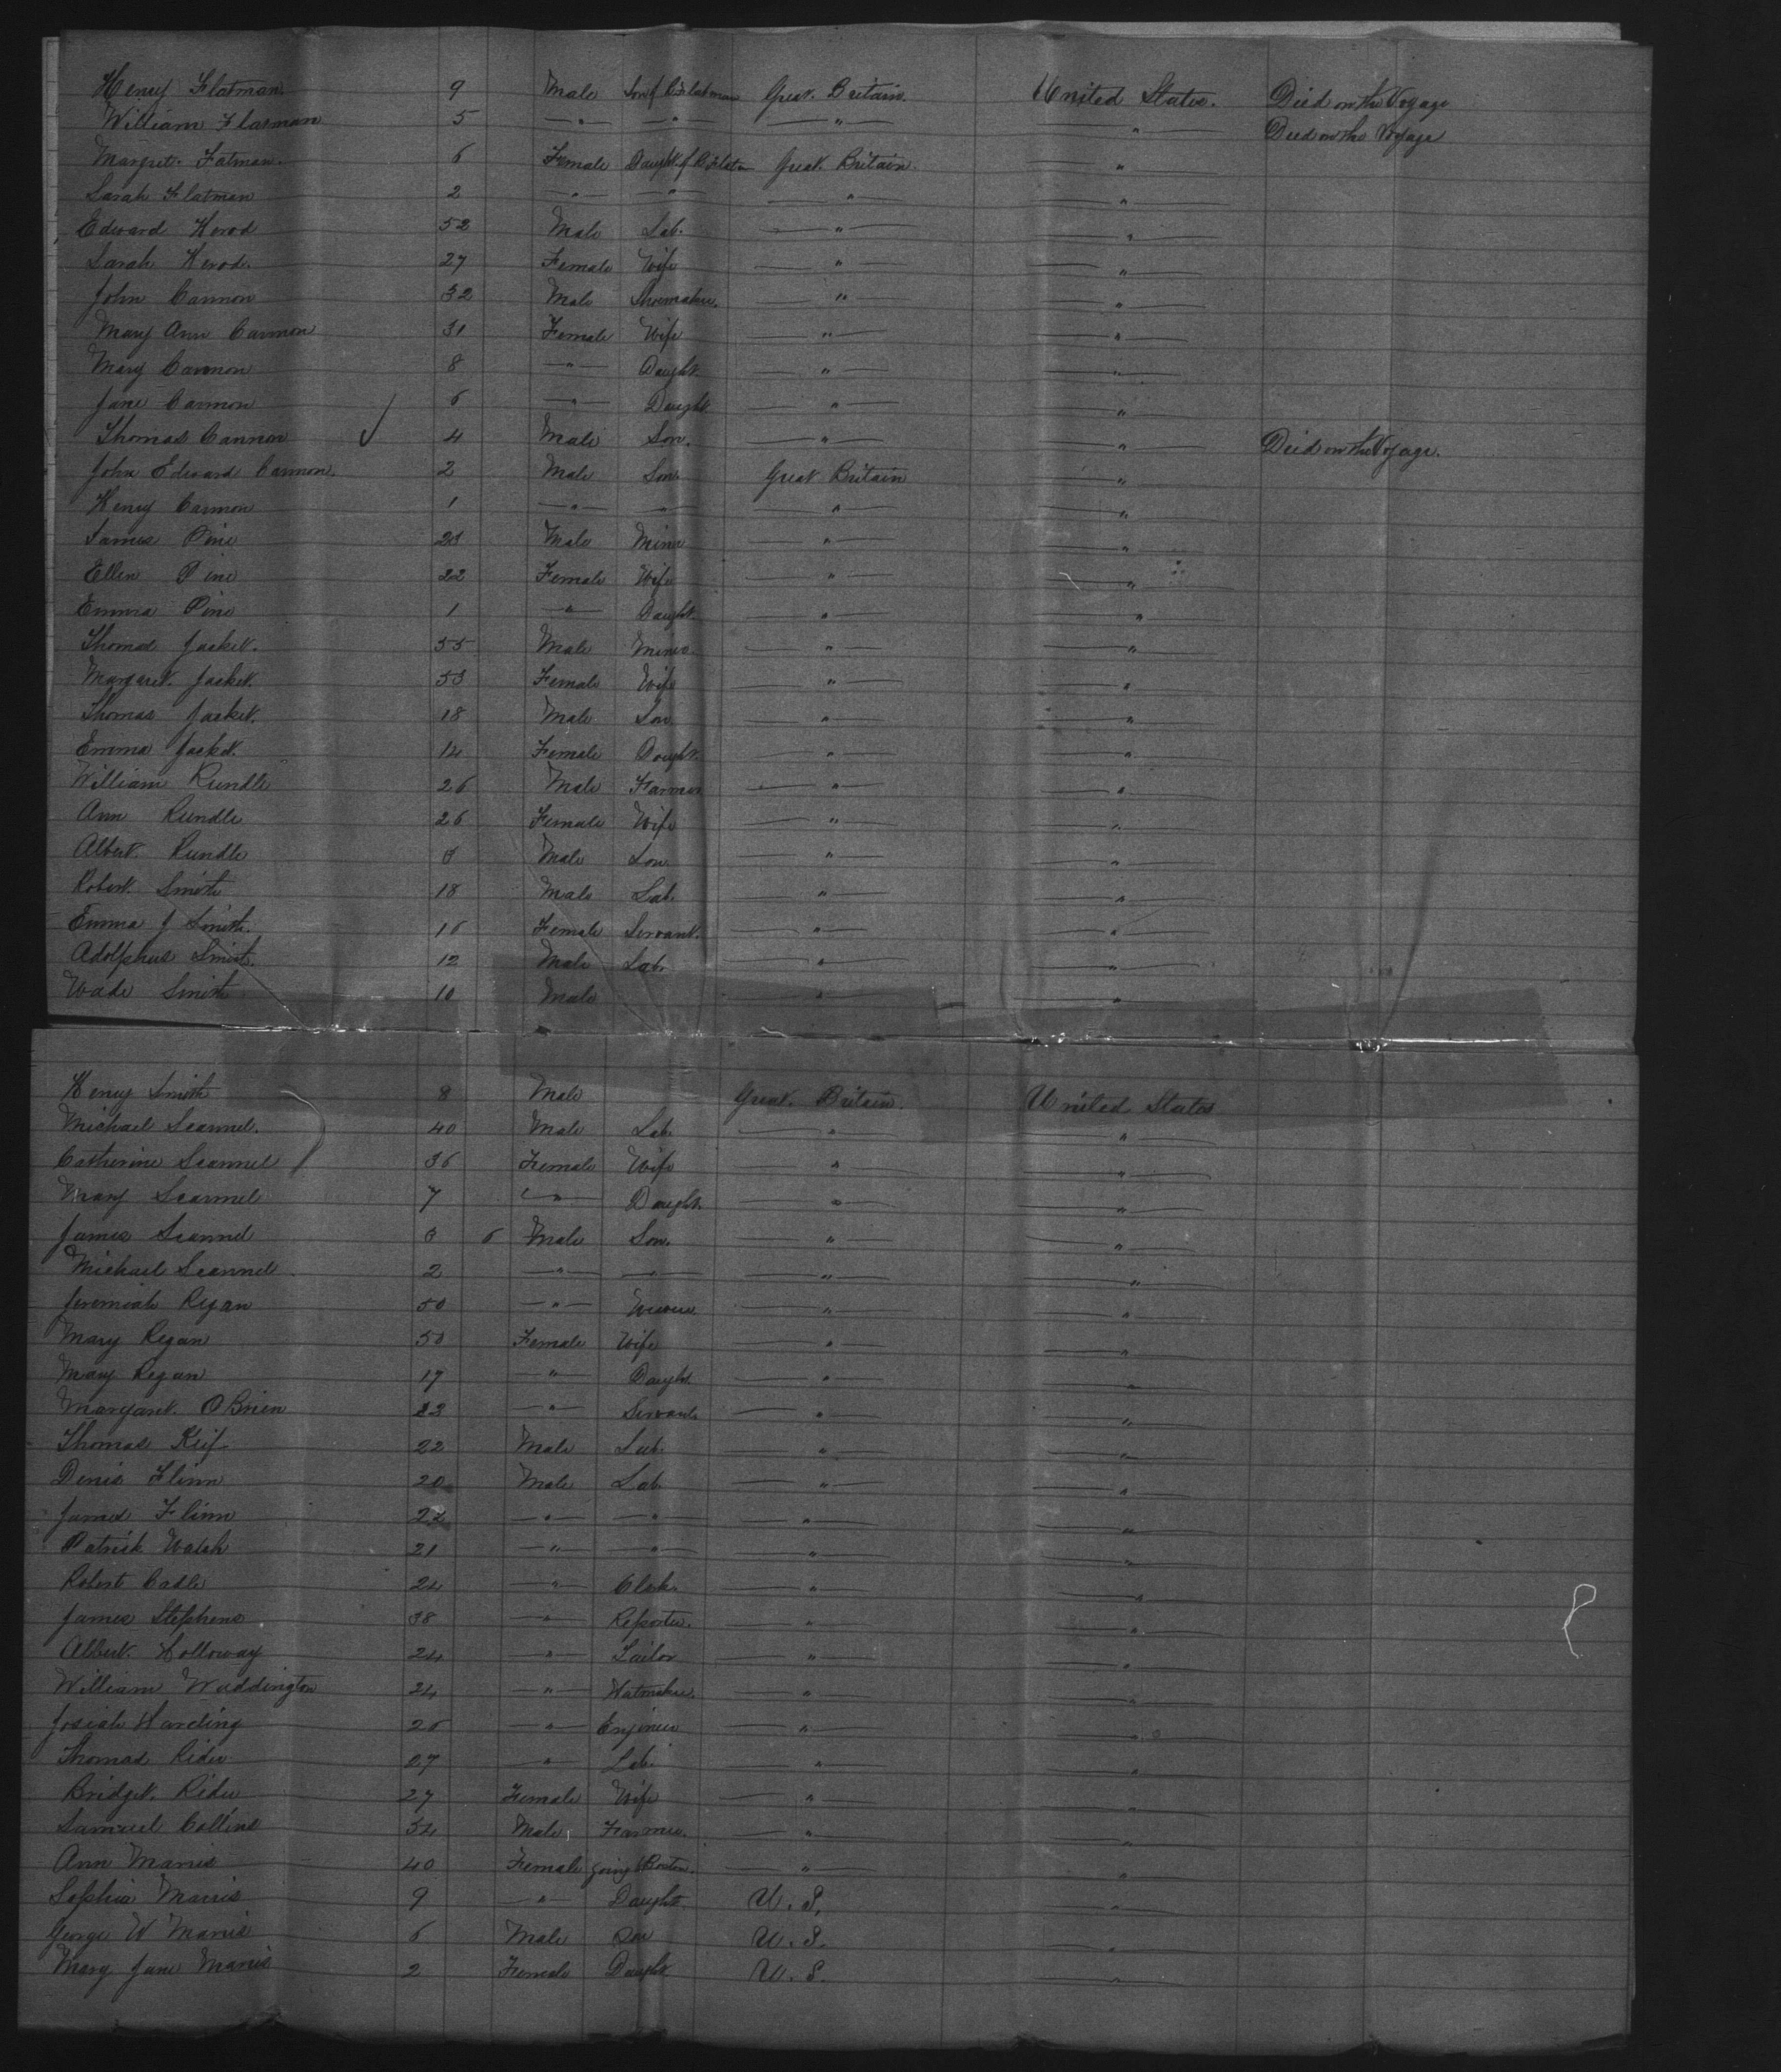 Henry Flatman 9 Male Son of Flatman Great Britain United States. Died on the Voyage
William Flatman 5 " " " " Died on the Voyage
Margret Fatman. 6 Female Daught. of Great Britain "
Sarah Flatman 2 " " " "
Edward Herod 52 Male Lab. " "
Sarah Herod. 27 Female Wife " "
John Cannon 32 Male Shoemaker. " "
Mary Ann Cannon 31 Female Wife " "
Mary Cannon 8 " Daught. " "
Jane Cannon 6 " Daught. " "
Thomas Cannon 4 Male Son. " " Died on the Voyage.
John Edward Cannon. 2 Male Son. Great Britain "
Henry Cannon 1 " " " "
James Pine Male Miner " "
Ellen Pine 22 Female Wife " "
Emma Pine 1 " Daught. " "
Thomas Jacket. 55 Male Miner. " "
Margaret Jacket. 53 Female Wife " "
Thomas Jacket. 18 Male Son " "
Emma Jacket. 14 Female Daught. " "
William Rundle 26 Male Farmer " "
Ann Rundle 26 Female Wife " "
Albert Rundle Male Son " "
Robert Smith 18 Male Lab. " "
Emma J Smith. 16 Female Servant. " "
Adolphus Smith. 12 Male Lab. " "
Wade Smith 10 Male " "
Henry Smith 8 Male Great Britain. United States
Michael Scannel. 40 Male Lab. " "
Catherine Scannel 36 Female Wife " "
Mary Scannel 7 " Daught. " "
James Scannel 3 6 Male Son. " "
Michael Scannel 2 " " " "
Jeremiah Regan 50 " " "
Mary Regan 50 Female Wife " "
Mary Regan 17 " Daught. " "
Margaret OBrien 22 " Servant " "
Thomas Keif 22 Male Lab. " "
Denis Flinn 20 Male Lab. " "
James Flinn 22 " " " "
Patrick Walsh 21 " " " "
Robert Cadle 24 " Clerk. " "
James Stephens 38 " Reporter. " "
Albert Holloway 24 " Tailor " "
William Waddington 24 " Hatmaker. " "
Josiah Harding 26 " Engineer " "
Thomas Rider 27 " Lab. " "
Bridget Rider 27 Female Wife " "
Samuel Collins 34 Male Farmer. " "
Ann Marris 40 Female going Boston. " "
Sophia Marris 9 " Daught. U. S. "
George W Marris 6 Male Son U. S. "
Mary Jane Marris 2 Female Daught U. S. "